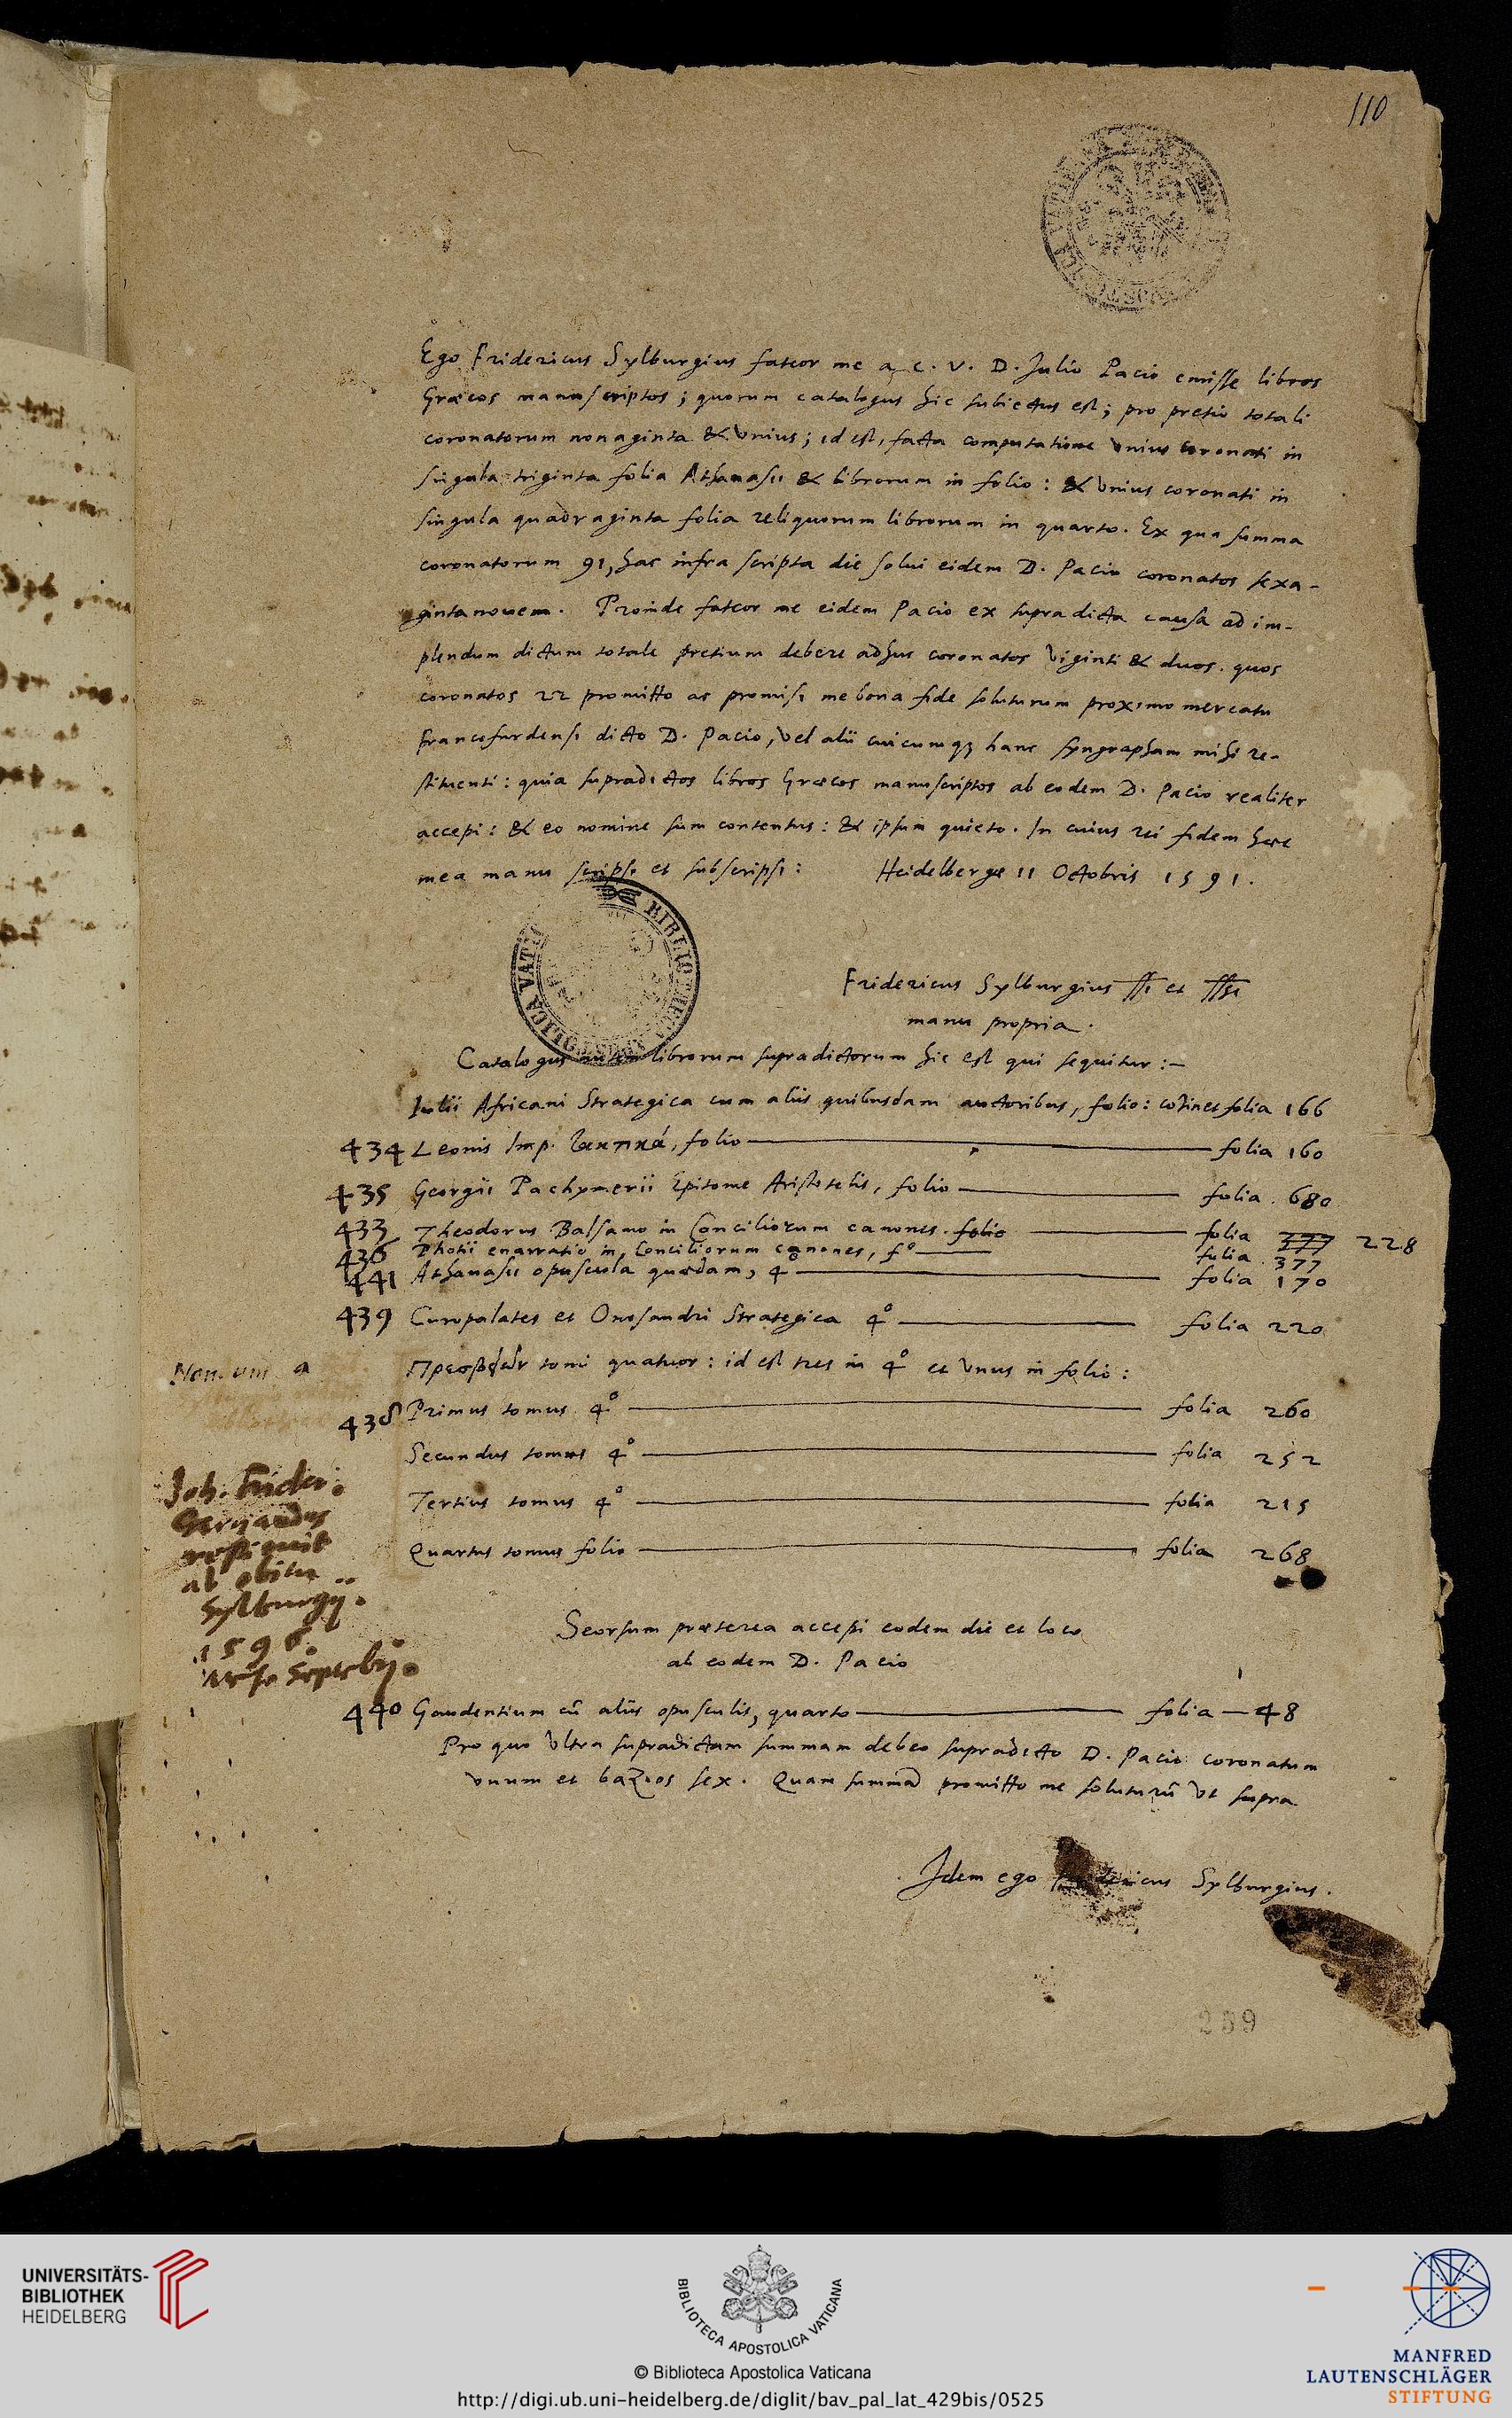 110
Ego Fridericus Sylburgius fateor me a C. V. D. Julio Pacio emisse libros
Græcos manuscriptos; quorum catalogus hic subiectus est; pro pretio totali
coronatorum nonaginta & Vnius; id est, facta computatione Vnius coronati in
singula triginta folia Athanasii & librorum in folio: & Vnius coronati in
singula quadraginta folia reliquorum librorum in quarto. Ex qua summa
coronatorum 91, hac infra scripta die solui eidem D. Pacio coronatos sexa-
ginta nouem. Proinde fateor me eidem Pacio ex supradicta causa ad im-
plendum dictum totale pretium debere adhuc coronatos Viginti & duos. quos
coronatos 22 promitto ac promisi me bona fide soluturum proximo mercatu
Francofurdensi dicto D. Pacio, Vel alii cuicumq; hanc syngrapham mihi re-
stituenti: quia supradictos libros Græcos manuscriptos ab eodem D. Pacio realiter
accepi: & eo nomine sum contentus: & ipsum quieto. In cuius rei fidem hæc
mea manu scripsi et subscripsi: Heidelbergæ 11 Octobris 1591.
BIBLIOTHECA APOSTOLICA VATIC
Fridericus Sylburgius ssi et sssi
manu propria.
Catalogus autem librorum supradictorum hic est qui sequitur:-
Julii Africani Strategica cum aliis quibusdam auctoribus, folio: cotinet folia 166
434 Leonis Imp. Τακτικά, folio folia 160
435 Georgii Pachymerii Epitome Aristotelis, folio folia 680
433 Theodorus Balsamo in Conciliorum canones. folio folia 377 228
436 Photii enarratio in Conciliorum canones, fo folia 377
441 Athanasii opuscula quædam, 4o folia 170
439 Curopalates et Onosandri Strategica 4o folia 220
Πρεσβειῶν tomi quatuor: id est tres in 4o et Vnus in folio:
438 Primus tomus 4o folia 260
Secundus tomus 4o folia 252
Tertius tomus 4o folia 215
Quartus tomus folio folia 268
Joh. Frider.
ab obitu
Sylburgij.
1596.
Seorsum præterea accepi eodem die et loco
ab eodem D. Pacio
440 Gaudentium cū aliis opusculis, quarto folia 48
Pro quo Vltra supradictam summam debeo supradicto D. Pacio coronatum
vnum et bazios sex. Quam summam promitto me soluturū Vt supra.
Idem ego Fridericus Sylburgius.
259
UNIVERSITÄTS-
BIBLIOTHEK
HEIDELBERG
BIBLIOTECA APOSTOLICA VATICANA
© Biblioteca Apostolica Vaticana
http://digi.ub.uni-heidelberg.de/diglit/bav_pal_lat_429bis/0525
MANFRED
LAUTENSCHLÄGER
STIFTUNG